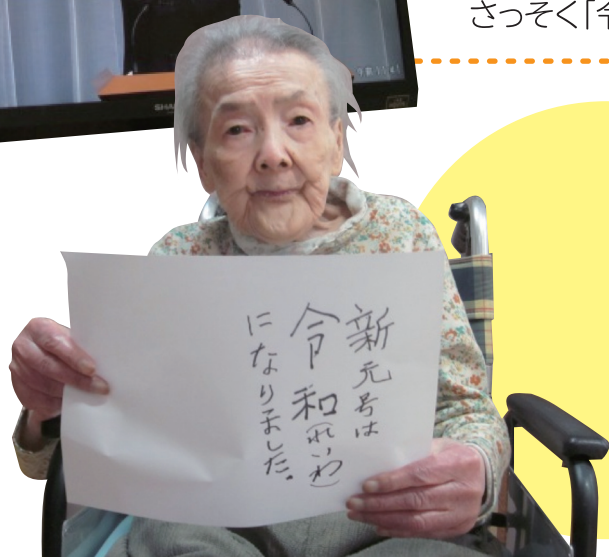 さっそく「令
新元号は
令和(れいわ)
になりました。
SHA